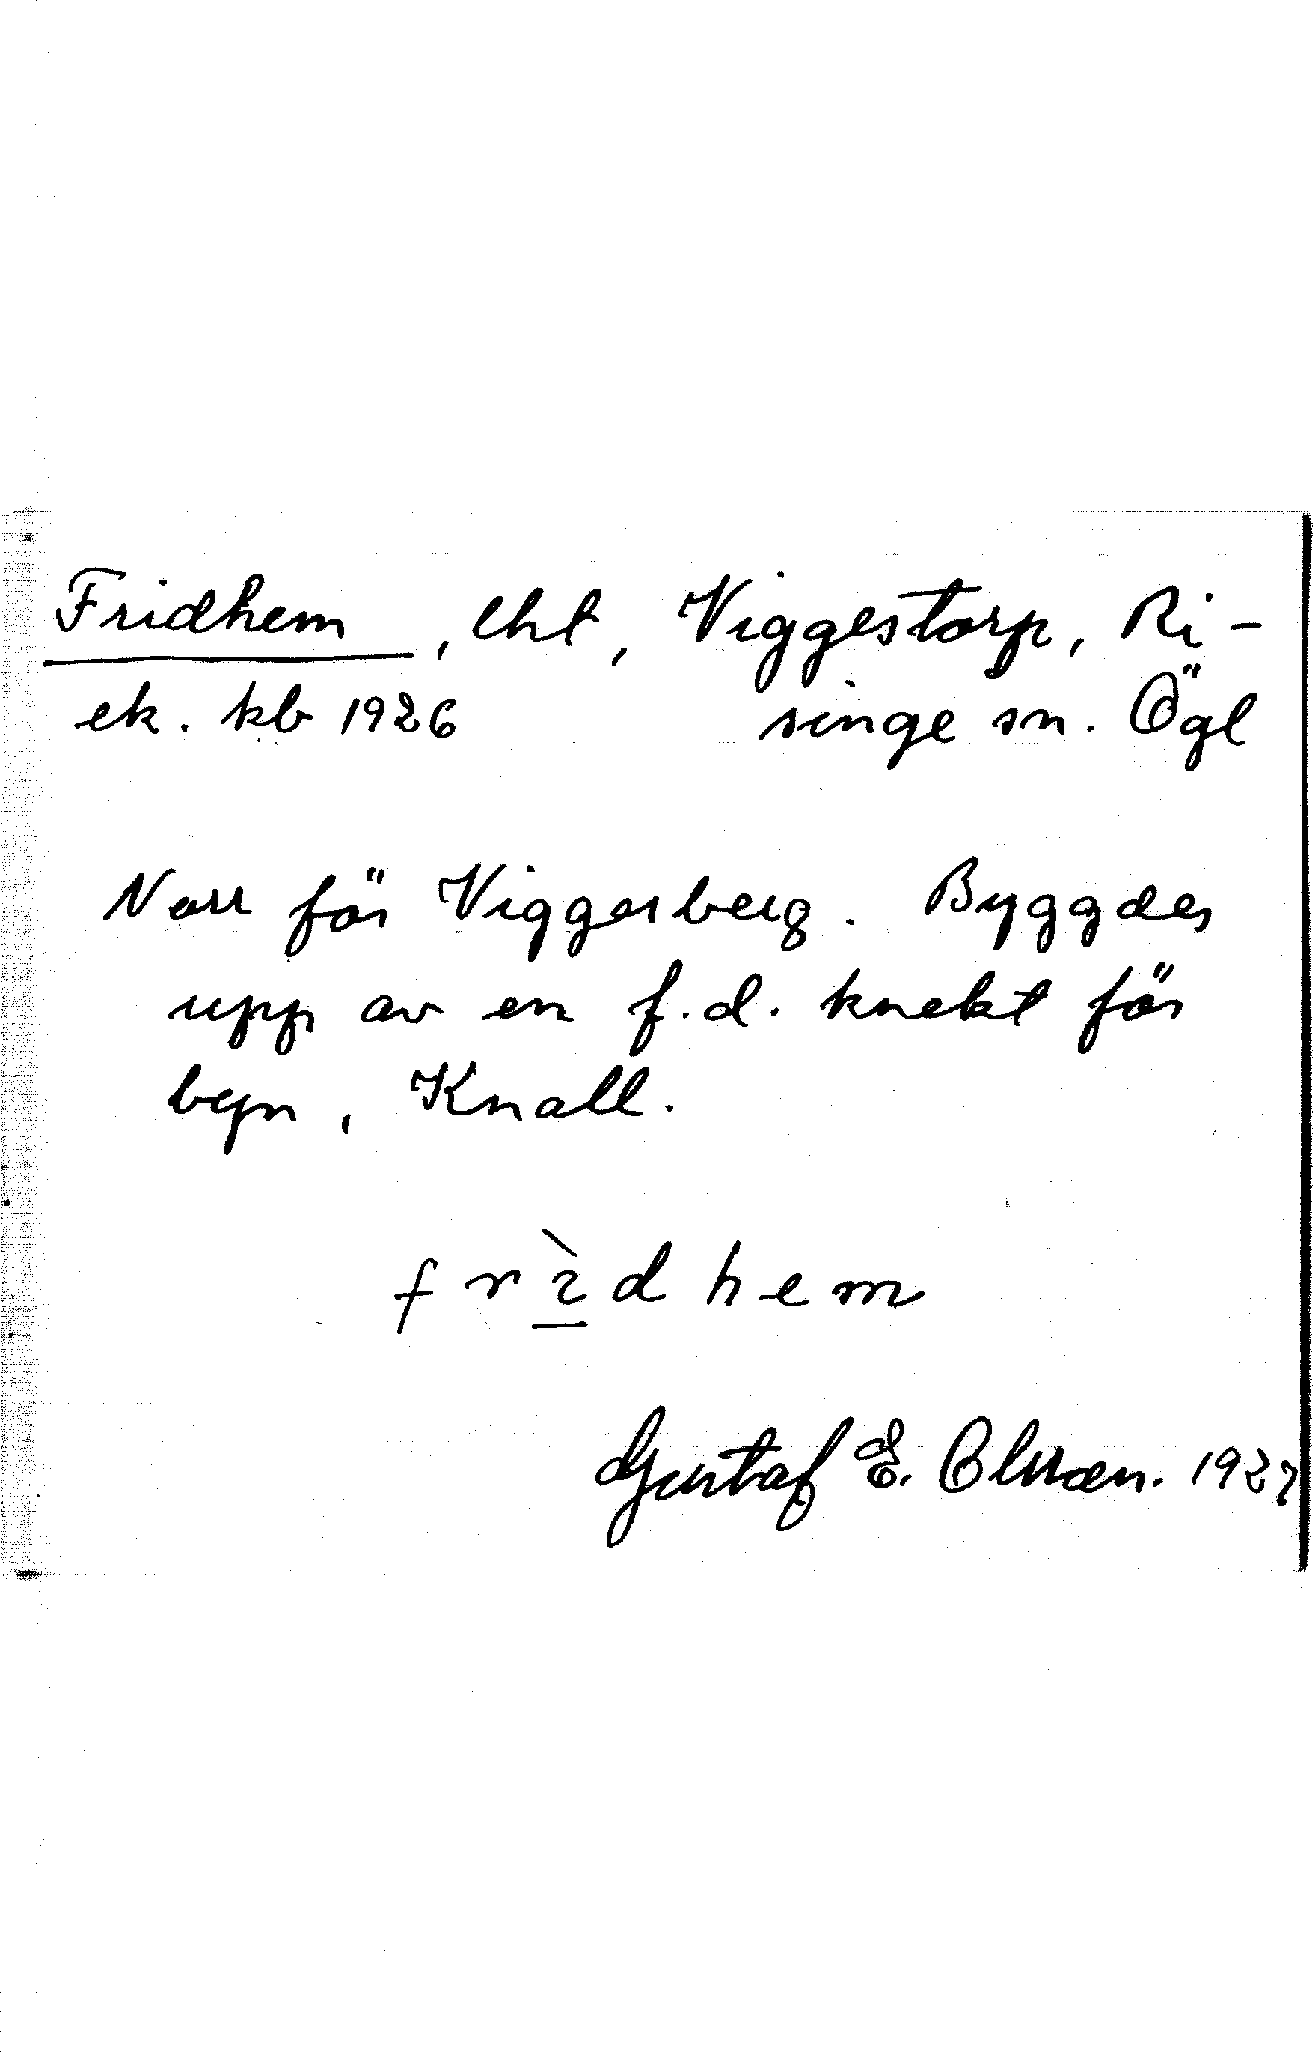 Fridhem, lht, Viggestorp, Ri-
ek. kb 1926 singe sn. Ögl
Norr för Viggersberg. Byggdes
upp av en f.d. knekt för
byn, Knall.
frı̀dhem
Gustaf E. Olsson. 1927